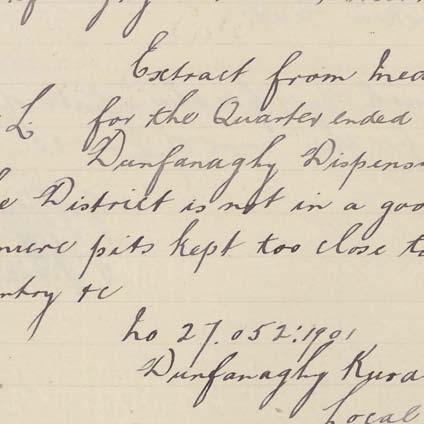 Extract from Med
L. for the Quarter ended
Dunfanaghy Dispens
District is not in a goo
pits kept too close to
ntry &c
No 27.052:1901
Dunfanaghy Rura
Local